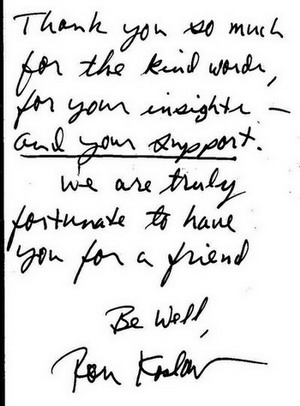 Thank you so much
for the kind words,
for your insights –
and your support.
We are truly
fortunate to have
you for a friend
Be Well,
Ron Koslow